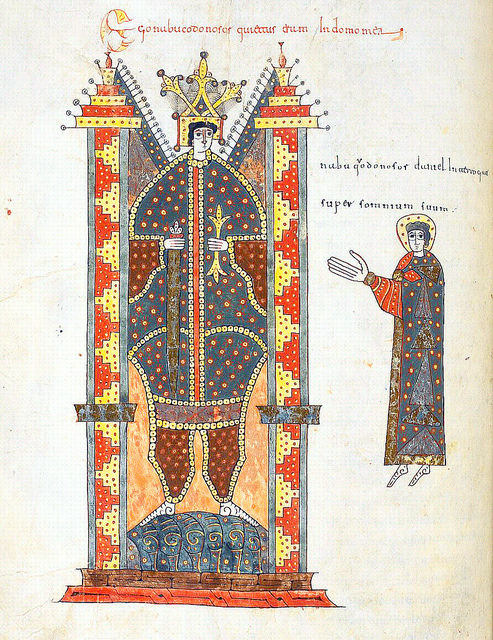 Ego nabucodonosor quietus eram In domo mea
nabuqodonosor daniel
super somnium suum